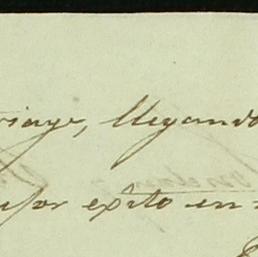 viage, llegando
mejor exîto en